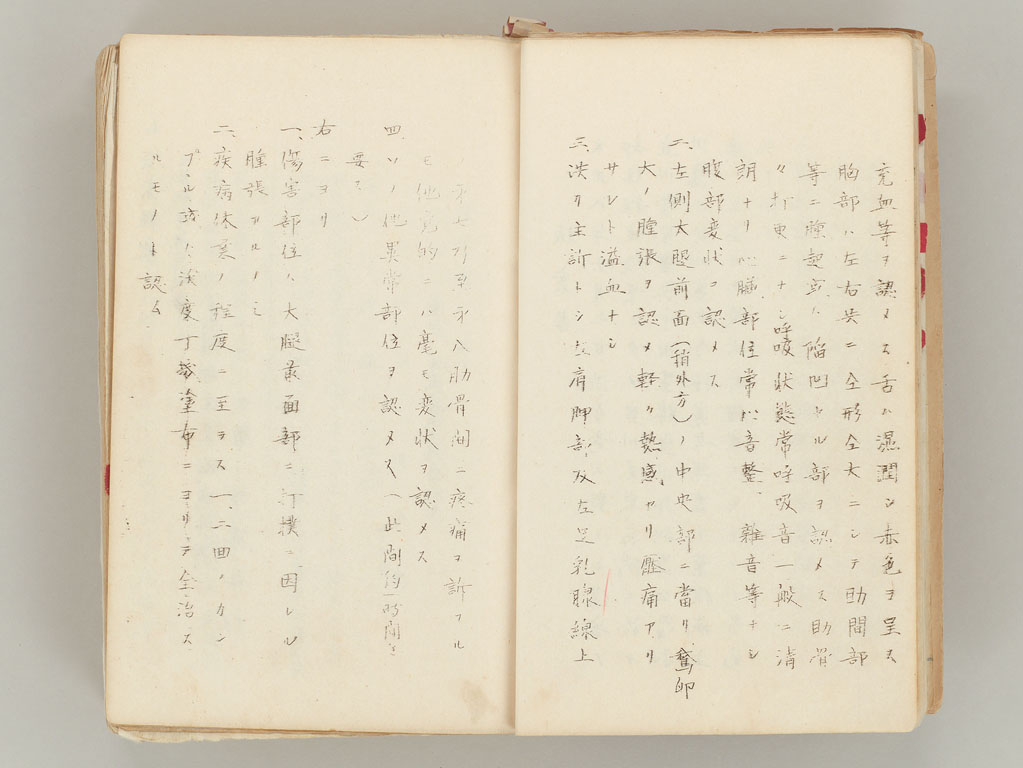 充血等ヲ認メス舌ハ濕潤シ赤色ヲ呈ス
胸部ハ左右共ニ仝形仝大ニシテ肋間部
等ニ腫起或ハ陥凹セル部ヲ認メス肋骨
打更ニナシ呼吸状態常呼吸音一般ニ清
朗ナリ心臓部位常心音整、雜音等ナシ
腹部変状ヲ認メス
二、左側大腿前面(稍外方)ノ中央部ニ當リ、奮卵
大ノ腫張ヲ認メ軽ク熱感アリ壓痛アリ
サレト溢血ナシ
三、次リ主訴トシ左肩胛部及左足乳腺線上
ノ第七乃至第八肋骨間ニ疼痛ヲ訴フル
モ他覚的ニハ毫モ変状ヲ認メス
四、ソノ他異常部位ヲ認メス(此間約一時間ヲ
要ス)
右ニヨリ
一、傷害部位ハ大腿前面部ニ打撲ニ因レル
腫張アルノミ
二、疾病休業ノ程度ニ至ラス一、二回ノカン
プル或ハ沃度丁幾塗布ニヨリテ全治ス
ルモノト認ム